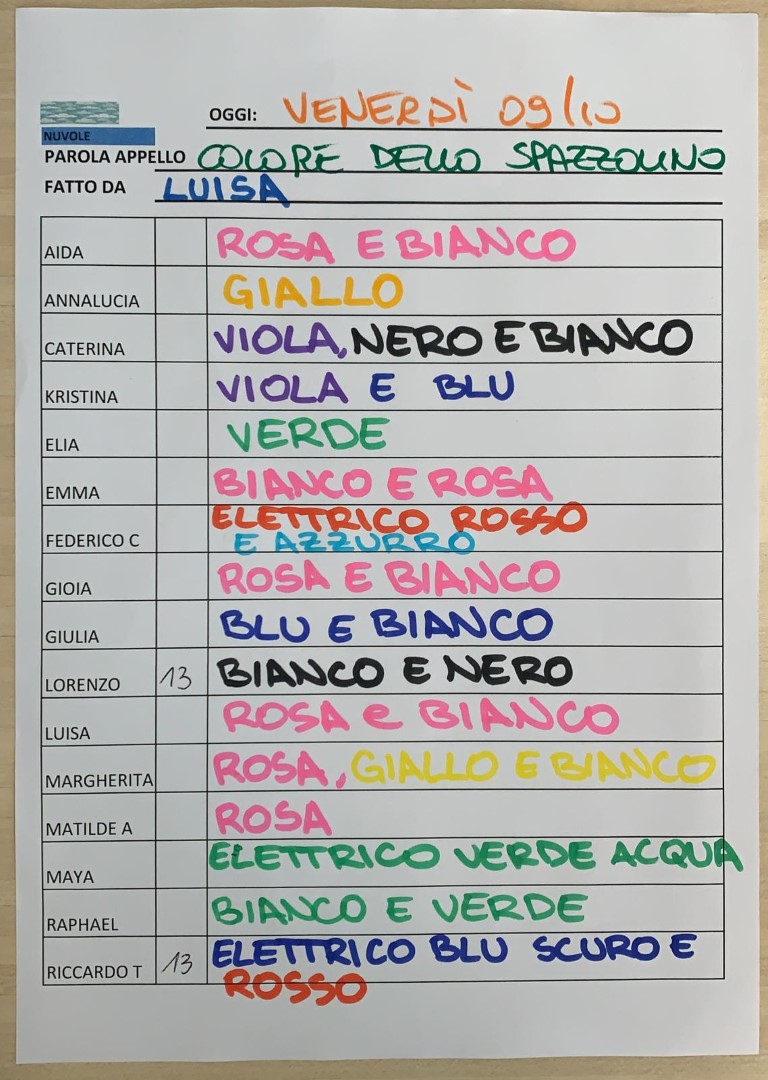 OGGI: VENERDÌ 09/10
NUVOLE
PAROLA APPELLO COLORE DELLO SPAZZOLINO
FATTO DA LUISA
AIDA ROSA E BIANCO
ANNALUCIA GIALLO
CATERINA VIOLA, NERO E BIANCO
KRISTINA VIOLA E BLU
ELIA VERDE
EMMA BIANCO E ROSA
FEDERICO C ELETTRICO ROSSO
E AZZURRO
GIOIA ROSA E BIANCO
GIULIA BLU E BIANCO
LORENZO 13 BIANCO E NERO
LUISA ROSA e BIANCO
MARGHERITA ROSA, GIALLO E BIANCO
MATILDE A ROSA
MAYA ELETTRICO VERDE ACQUA
RAPHAEL BIANCO E VERDE
RICCARDO T 13 ELETTRICO BLU SCURO E
ROSSO